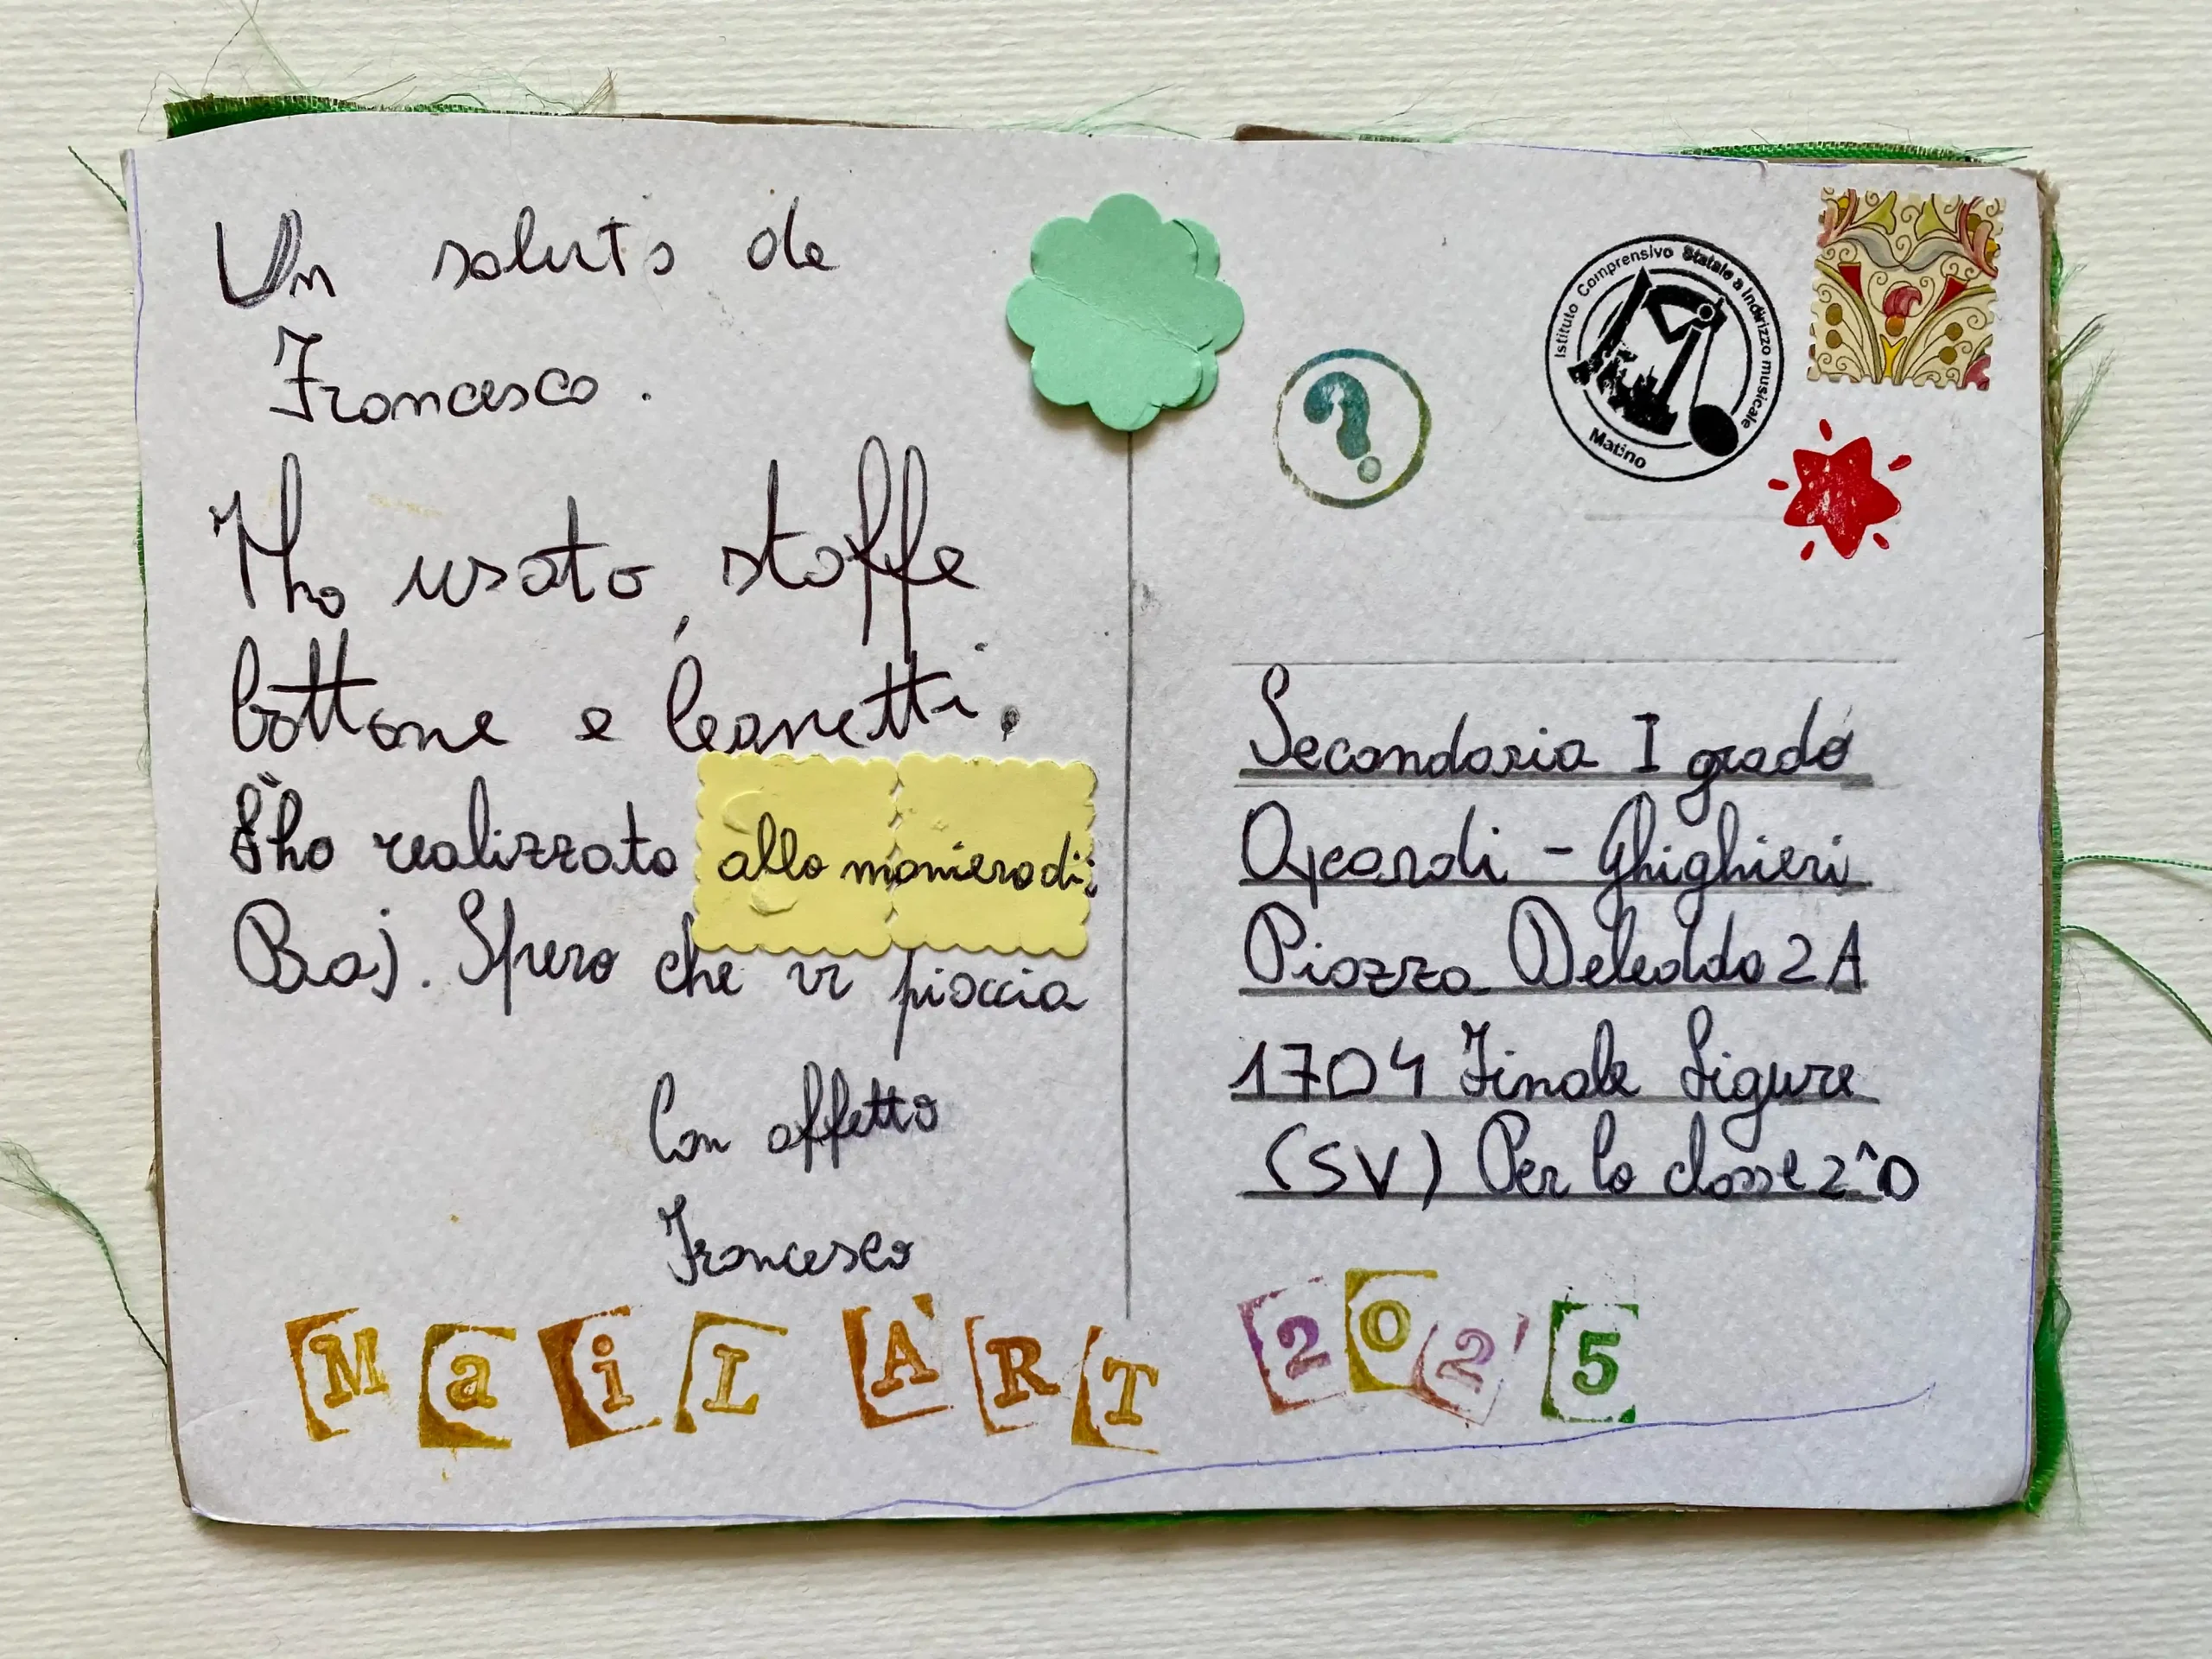 Un saluto da
Francesco.
Ho usato stoffe
bottone e
realizzato alla maniera di:
Baj. Spero che vi piaccia
Con affetto
Francesco
MaiL ART 2025
Istituto Comprensivo Statale a Indirizzo musicale
Matino
?
Secondaria I grado
- Ghighieri
Piazza Deledda 2A
1704 Finale Ligure
(SV) Per la classe 2^D